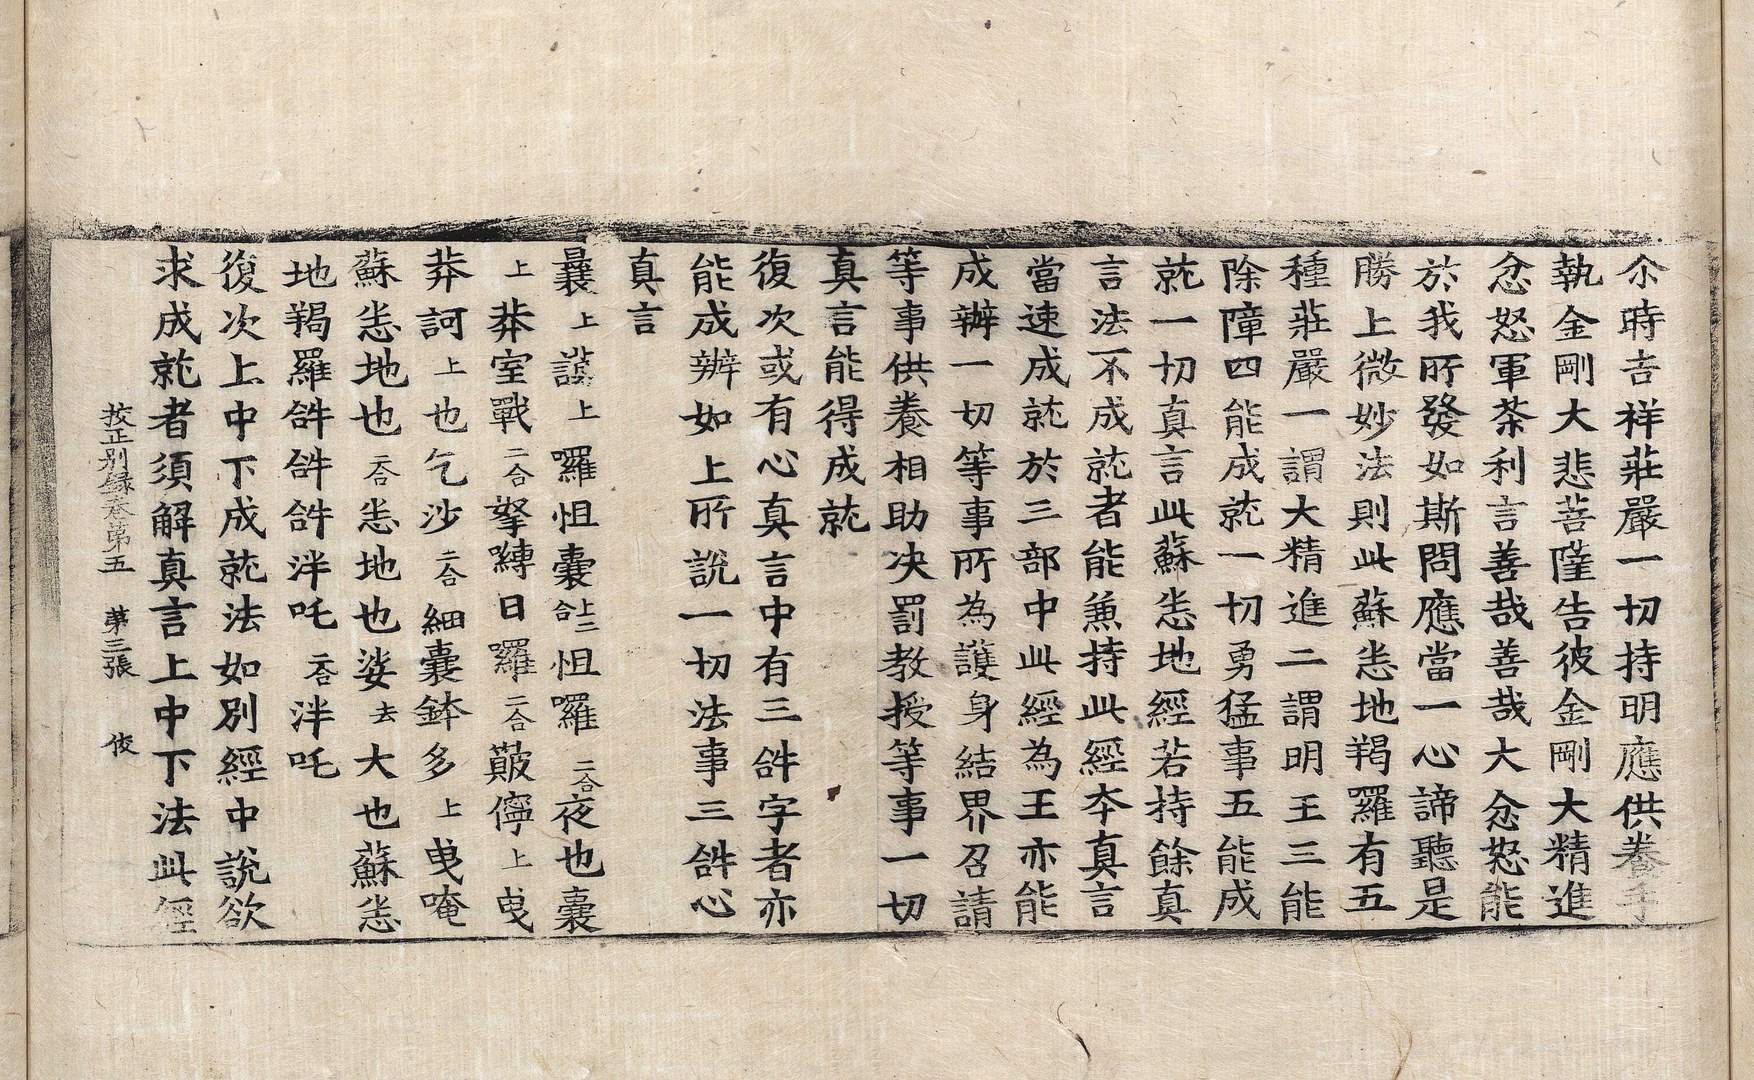 尒時吉祥莊嚴一切持明應供養手
執金剛大悲菩薩告彼金剛大精進
忿怒軍茶利言善哉善哉大忿怒能
於我所發如斯問應當一心諦聽是
勝上微妙法則此蘇悉地羯羅有五
種莊嚴一謂大精進二謂明王三能
除障四能成就一切勇猛事五能成
就一切真言此蘇悉地經若持餘真
言法不成就者能兼持此經本真言
當速成就於三部中此經為王亦能
成辦一切等事所為護身結界召請
等事供養相助决罰教授等事一切
真言能得成就
復次或有心真言中有三𤙖字者亦
能成辦如上所說一切法事三𤙖心
真言
曩上謨上囉怛囊上二合怛囉二合夜也囊
上莽室戰二合拏嚩日囉二合皽儜上曳
莽訶上也乞沙二合細囊鉢多上曳唵
蘇悉地也二合悉地也娑去大也蘇悉
地羯羅𤙖𤙖𤙖泮吒二合泮吒
復次上中下成就法如別經中說欲
求成就者須解真言上中下法此經
挍正別錄卷第五 第三張 俊